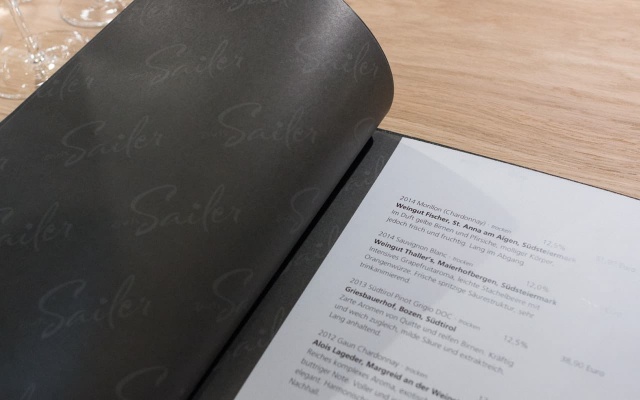 Sailer
Sailer
Sailer
Sailer
Sailer
Sailer
Sailer
Sailer
2014 Morillon (Chardonnay) · trocken
Weingut Fischer, St. Anna am Aigen, Südsteiermark
12,5%
Im Duft gelbe Birnen und Pfirsiche, molliger Körper,
jedoch frisch und fruchtig. Lang im Abgang.
2014 Sauvignon Blanc · trocken
Weingut Thaller's, Maierhofbergen, Südsteiermark
12,0%
Intensives Grapefruitaroma, leichte Stachelbeere mit
Orangenwürze. Frische spritzige Säurestruktur, sehr
trinkanimierend.
2013 Südtirol Pinot Grigio DOC · trocken
Griesbauerhof, Bozen, Südtirol
12,5%
38,90 Euro
Zarte Aromen von Quitte und reifen Birnen. Kräftig
und weich zugleich, milde Säure und extraktreich.
Lang anhaltend.
2012 Gaun Chardonnay · trocken
Alois Lageder, Margreid an der
Reiches komplexes Aroma,
buttriger Note. Voller und
elegant.
Nachhall.